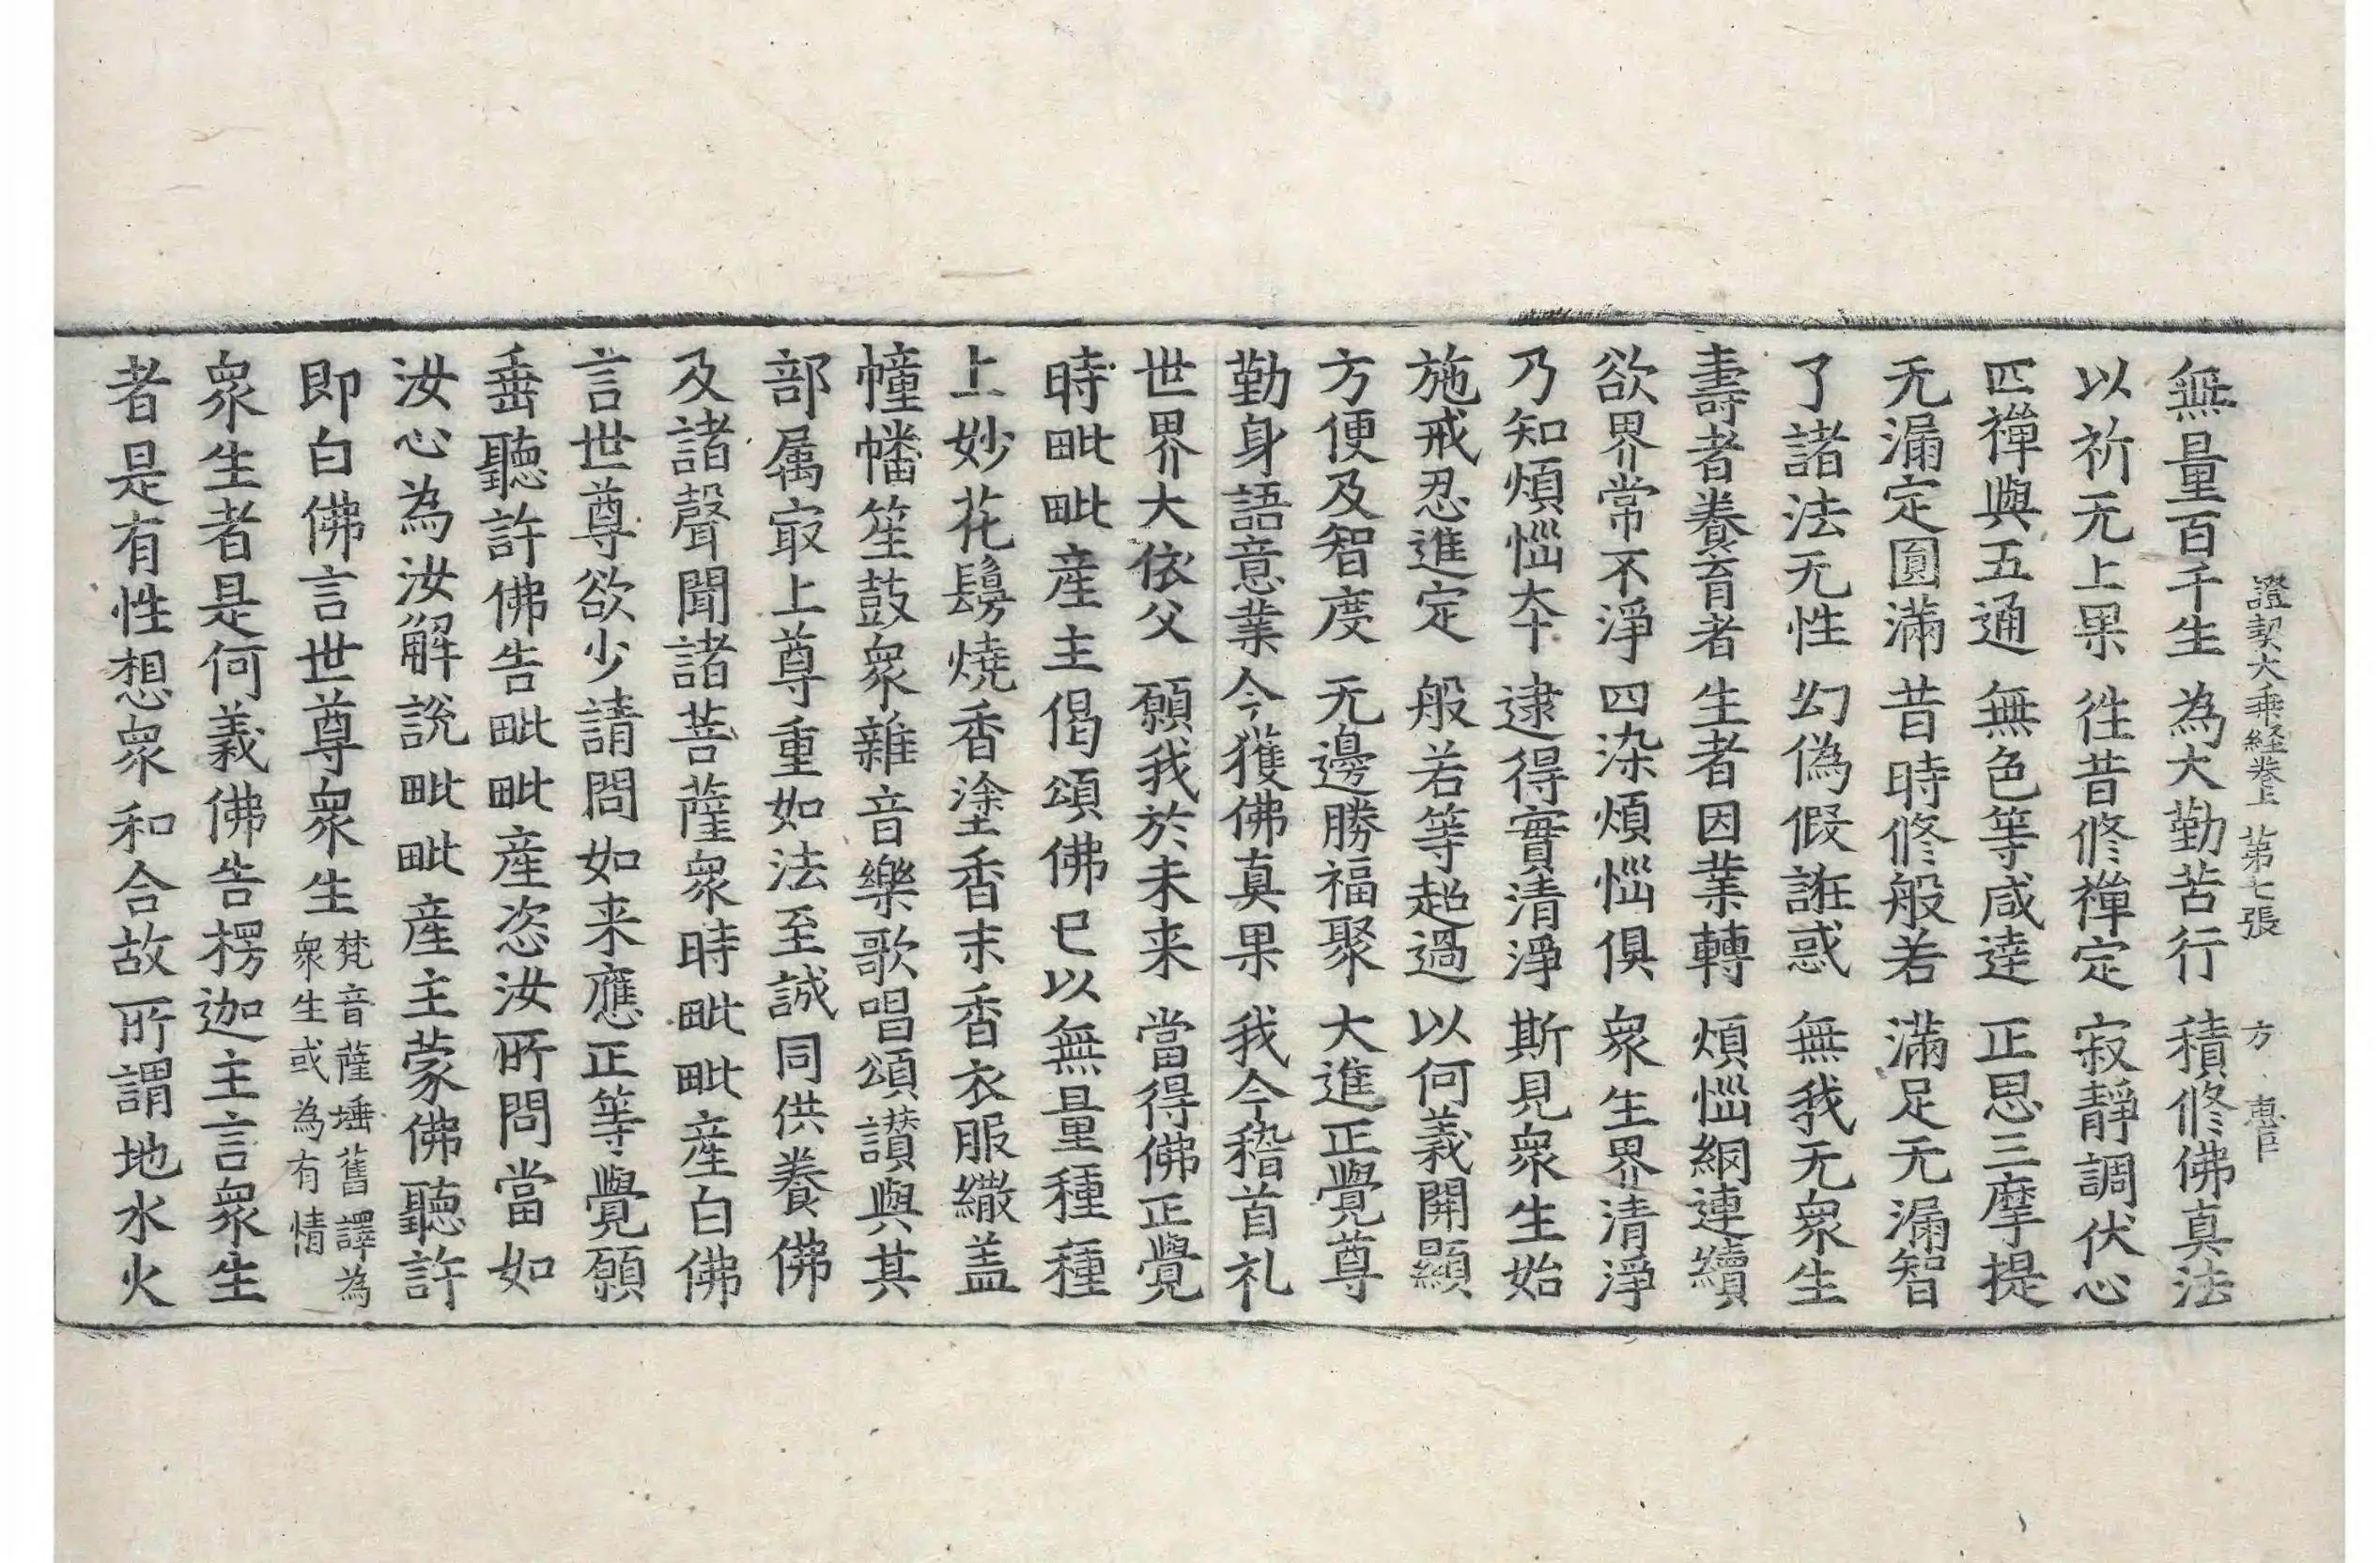 證契大乘経卷上 第七張 方 惠臣
無量百千生 為大勤苦行 積修佛真法
以祈无上果 徃昔修禪定 寂靜調伏心
四禪與五通 無色等咸達 正思三摩提
无漏定圓滿 昔時修般若 滿足无漏智
了諸法无性 幻偽假誑惑 無我无眾生
壽者養育者 生者因業轉 煩惱網連續
欲界常不淨 四染煩惱俱 眾生界清淨
乃知煩惱夲 逮得實清淨 斯見眾生始
施戒忍進定 般若等超過 以何義開顯
方便及智度 无邊勝福聚 大進正覺尊
勤身語意業 今獲佛真果 我今稽首礼
世界大依父 願我於未来 當得佛正覺
時毗毗産主偈頌佛已以無量種種
上妙花鬘燒香塗香末香衣服繖盖
幢幡笙鼓眾雜音樂歌唱頌讃與其
部属㝡上尊重如法至誠同供養佛
及諸聲聞諸菩薩眾時毗毗産白佛
言世尊欲少請問如来應正等覺願
垂聽許佛告毗毗産恣汝所問當如
汝心為汝解說毗毗産主蒙佛聽許
即白佛言世尊眾生梵音薩埵舊譯為眾生或為有情
眾生者是何義佛告楞迦主言眾生
者是有性想眾和合故所謂地水火